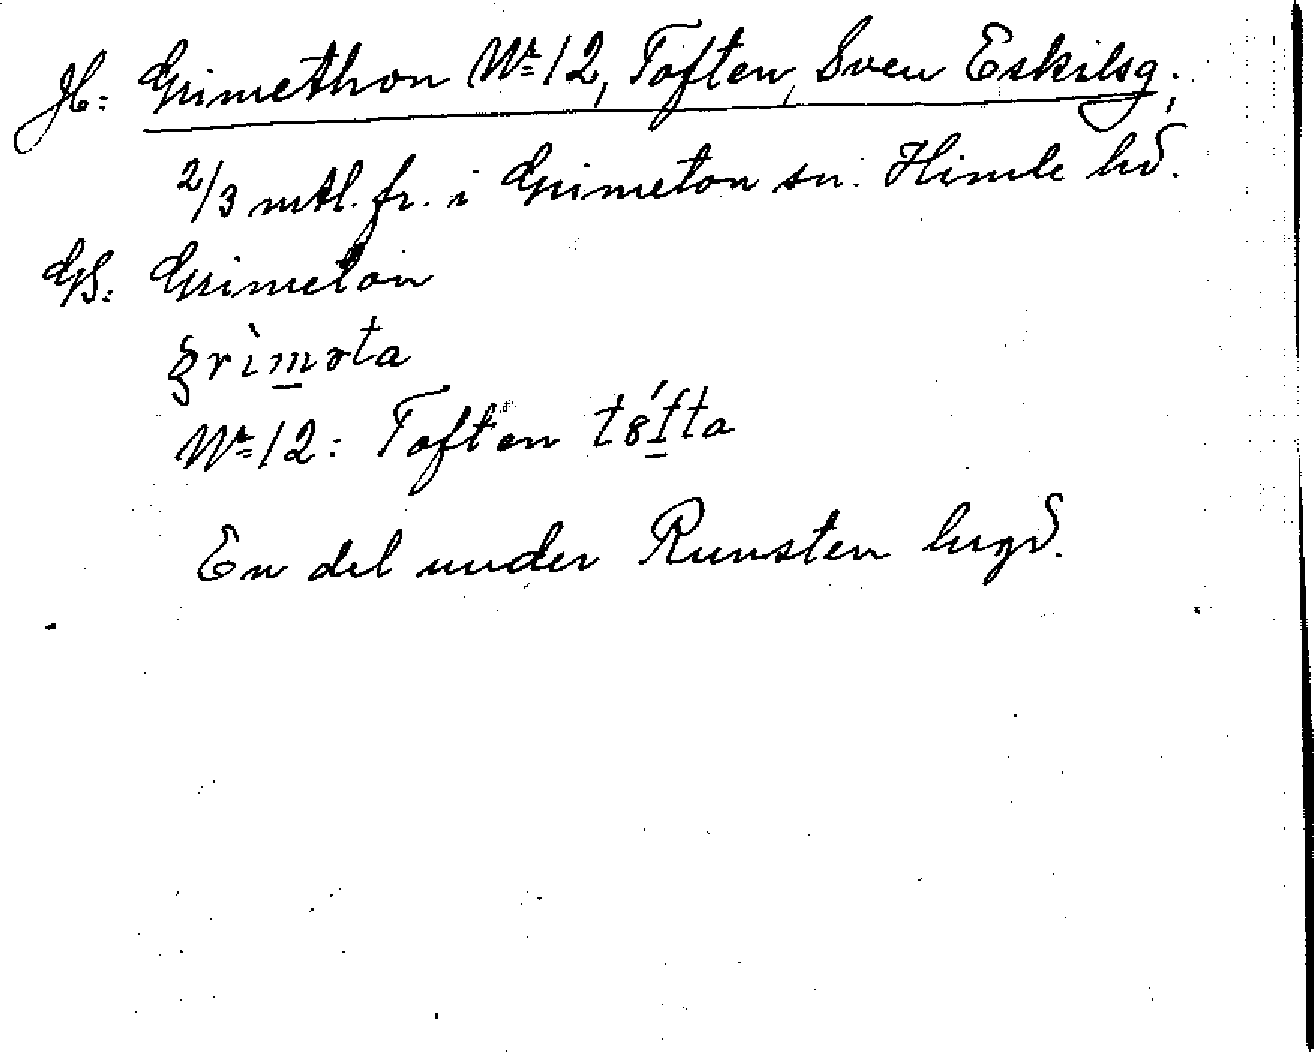 H: Grimethon Nr 12, Toften, Sven Eskilsg.,
2/3 mtl. fr. i Grimeton sn. Himle hd.
GS: Grimeton
grìməta
Nr 12: Toften tófta
En del under Runsten hrgd.